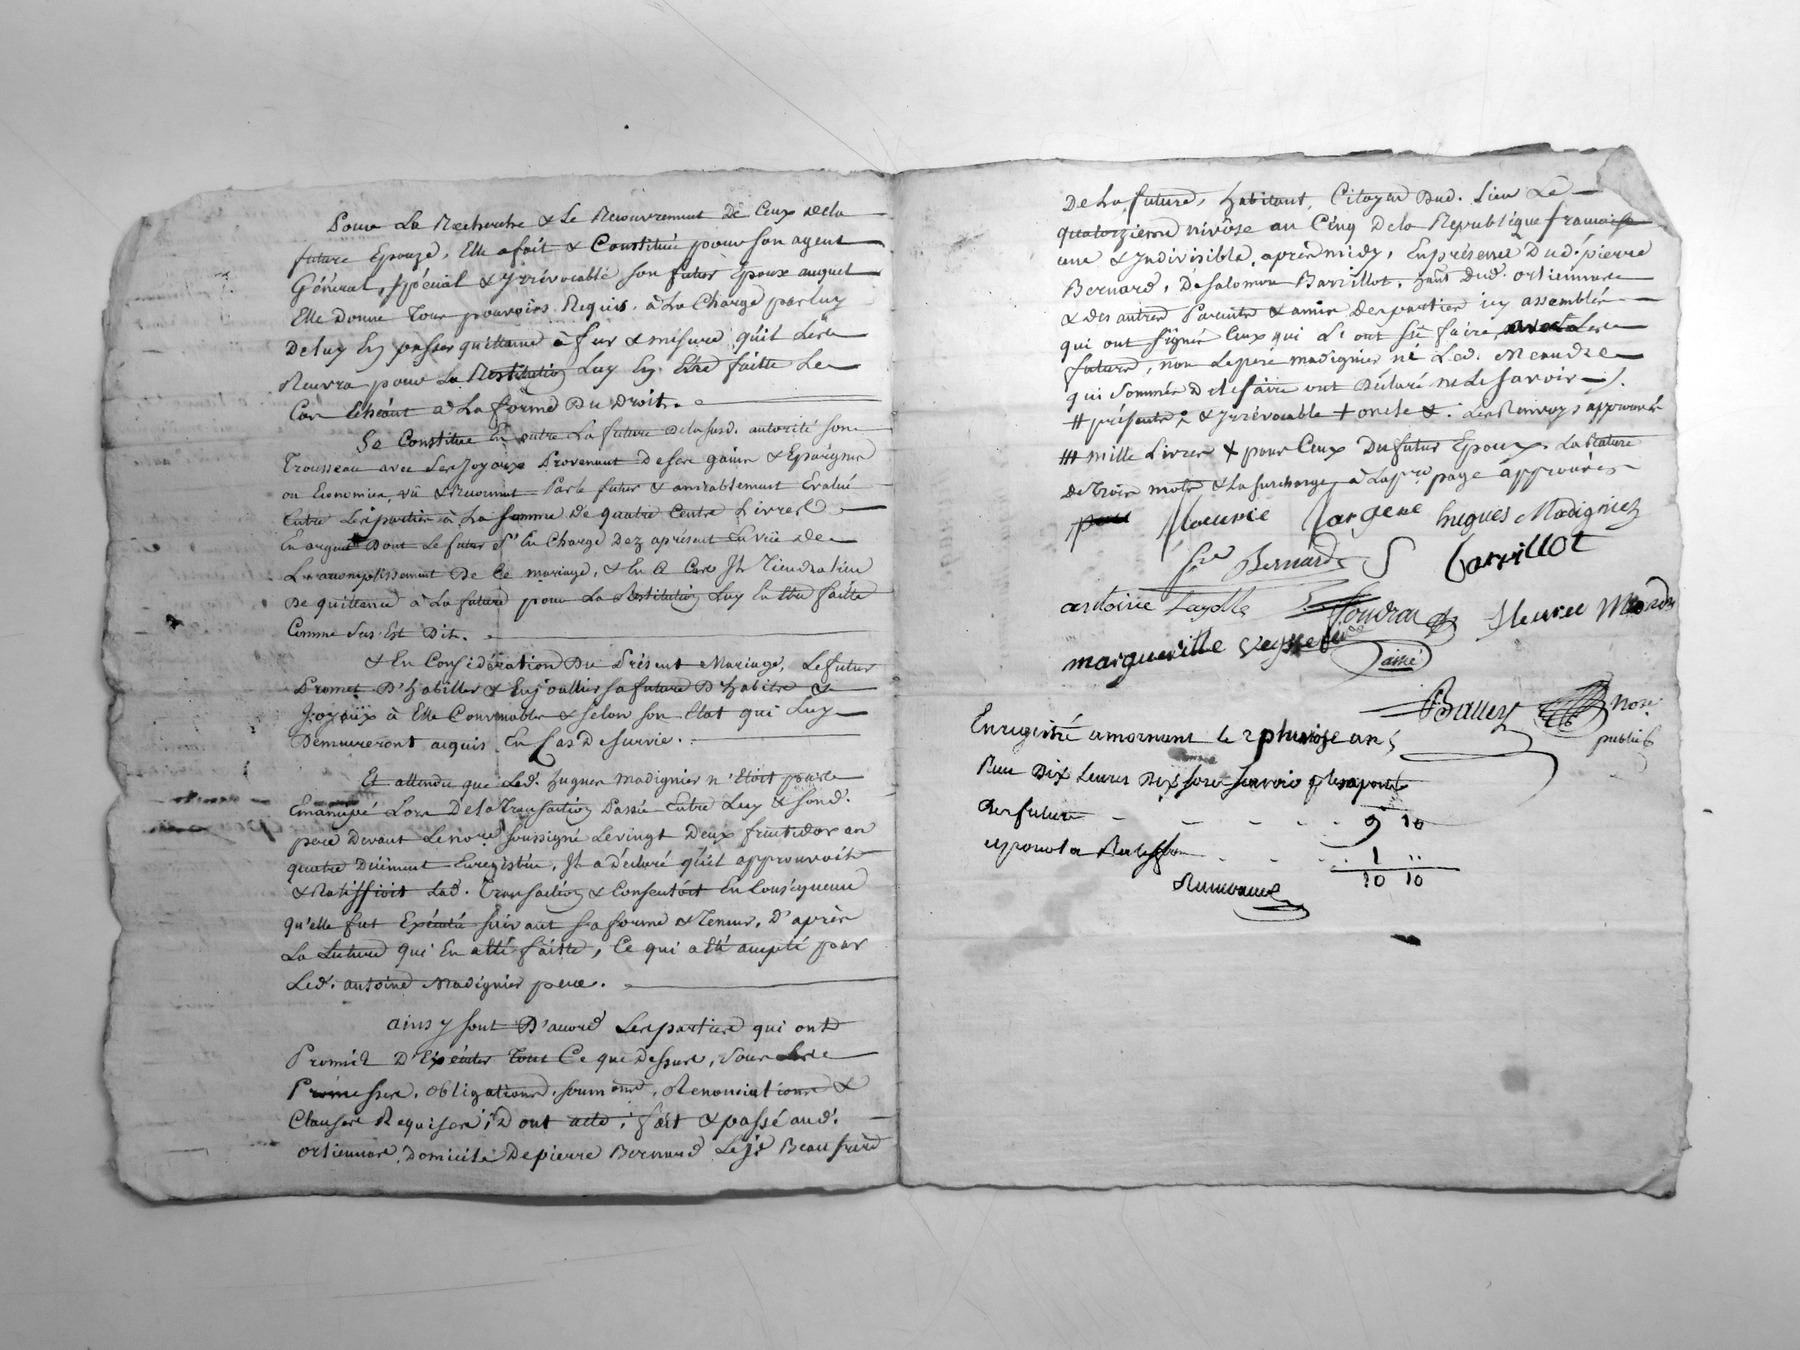 Pour La Recherche & Le Recouvrement De Ceux dela
future Epouze, Elle a fait & Constitué pour son agent
Général, spécial & Irrévocable son futur Epoux auquel
Elle Donne Tous pouvoirs Requis, à La Charge par luy
De luy En passer quittance à fur & mesure qu'il Les
Recevra pour La Restitution Luy En Etre faitte Le
Cas Echéant a La forme Du Droit.
Se Constitue En outre La future De la susd. autorité son
Trousseau avec Ses Joyaux Provenant de ses gains & Epargnes
ou Economies, vû & Reconnut Par le futur & amiablement Evalué
Entre Les parties à La somme De quatre Cents Livres
En argent Dont Le futur s'En Charge Dez apresent En vüe de
L'accomplissement De Ce mariage, & En Ce Cas Il Tiendra lieu
De quittance à La future pour La Restitution Luy En Etre faitte
Comme Sus Est Dit.
& En Considération Du Présent Mariage, Le futur
Promet D'habiller & Enjoallier sa future D'habits &
Joyaux à Elle Convenables & selon son Etat qui Luy
Demeureront acquis En Cas De survie.
Et attendu que Led. hugues Madignier n'étoit pas
Emancipé Lors De la Transaction Passée Entre Luy & sond.
pere Devant Le no.re soussigné Le vingt Deux fructidor an
quatre Düement Enregistrée, Il a déclaré qu'il approuvoit
& Ratiffioit Lad. Transaction & Consentoit En Conséquence
qu'elle fut Exécutée suivant sa forme & Teneur, D'après
La Lecture qui En a été faitte, Ce qui a été accepté par
Led. antoine Madignier pere.
ainsy sont D'accord Les parties qui ont
Promis D'Exécuter Tout Ce que Dessus, Sous Les
Promesses, obligations, soumons, Renonciations &
Clauses Requises; Dont acte, fait & passé aud.
ortiennare, Domicile De pierre Bernard Beau frere
De La future, habitant, Citoyen Dud. Lieu Le
quatorzieme nivôse an Cinq De la Republique francaise
une & Indivisible, après midy, En présence Dud. pierre
Bernard, De Salomon Barrillot, hant Dud. ortiennare
& des autres Parents & amis Des parties icy assemblés
qui ont signés Ceux qui Le ont sçu faire, avec Les
futurs, non Le pere Madignier ni Led.
qui Sommés De Le faire ont Déclaré ne Le savoir /.
# présents & & Irrévocable + oncle &. Les Renvoys approuvés
# mille Livres & pour Ceux Du futur Epoux. La Rature
De Trois mots & La surcharge à La p.re page approuvés
fleurie hugues Madignier
Bernard S barrillot
antoine fleurie
margueritte
Balley Nore
public
Enregistré a mornant le 2 pluviose an 5
Reçu Dix Livres Dix sous Savoir p. les aports
Des futurs - - - - 9 10
et pour la Ratiffon - - - 1 ..
10 10